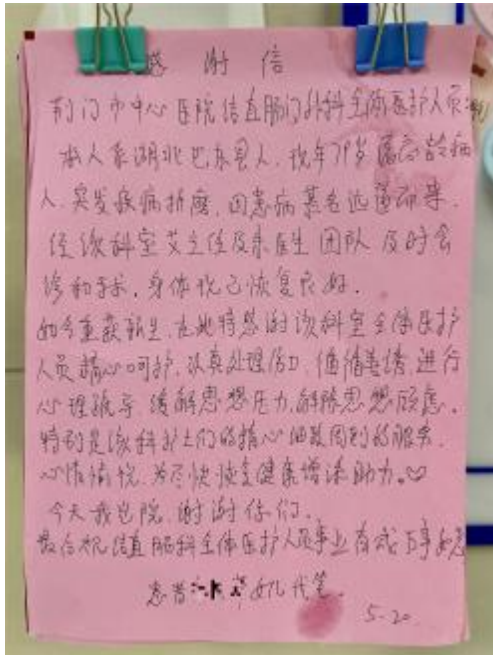 感谢信
荆门市中心医院结直肠肛门外科全体医护人员:
本人系湖北巴东县人,现年79岁属高龄病
人,突发疾病折磨,因患病慕名远道而来.
经该科室艾主任及朱医生团队及时会
诊和手术,身体现已恢复良好.
如今重获新生,在此特感谢该科室全体医护
人员精心呵护,认真处理伤口,循循善诱,进行
心理疏导,缓解思想压力,解除思想顾虑.
特别是该科护士们的精心细致周到的服务.
心情愉悦,为尽快恢复健康增添助力.♡
今天我出院,谢谢你们.
最后祝结直肠科全体医护人员事业有成万事如意
患者 女儿代笔.
5-20